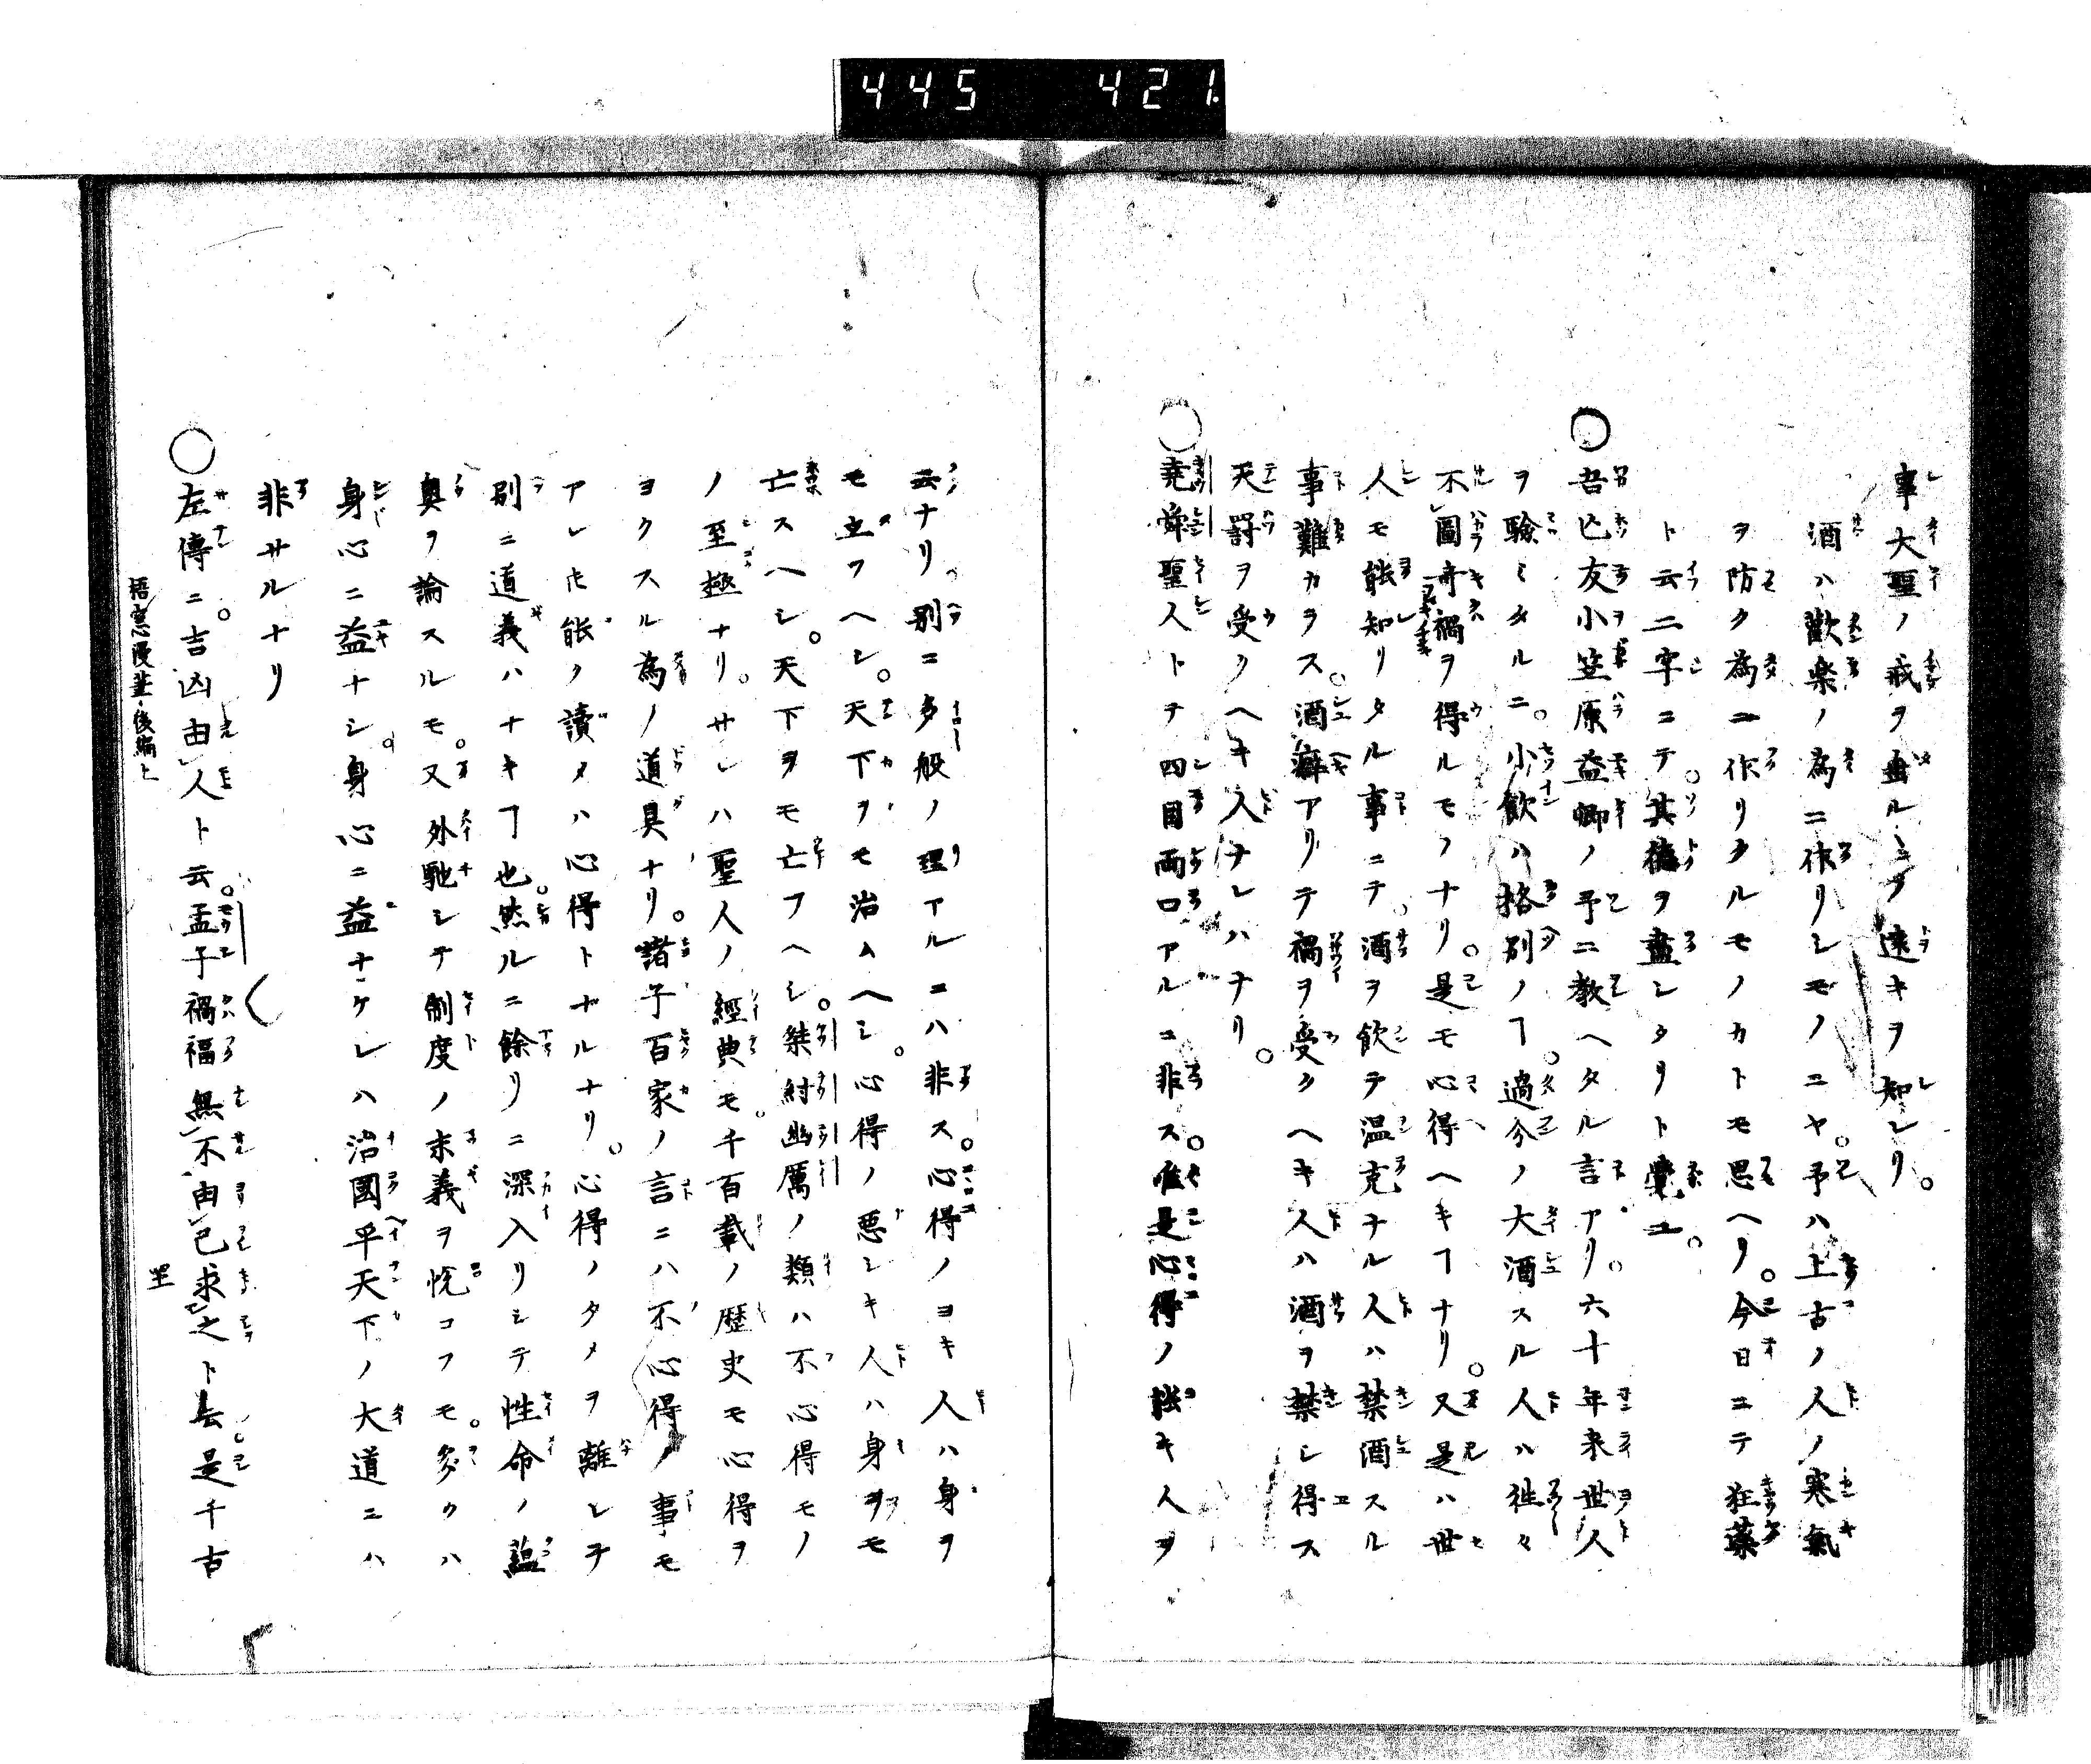 445 421
事大聖ノ戒ヲ垂ルヿヲ遠キヲ知レリ。
酒ハ歡楽ノ為ニ作リシモノニヤ。予ハ上古ノ人ノ寒氣
ヲ防ク為ニ作リタルモノカトモ思ヘリ。今日ニテ狂藥
ト云二字ニテ。其徳ヲ盡シタリト覺ユ。
○吾亡友小笠原益卿ノ予ニ教ヘタル言アリ。六十年来世人
ヲ驗ミタルニ。小飲ハ格別ノヿ。過分ノ大酒スル人ハ往々
不圖奇禍ヲ得ルモノナリ。是モ心得ヘキヿナリ。又是ハ世
人モ能知リタル事ニテ。酒ヲ飲テ温克ナル人ハ禁酒スル
事難カラス。酒癖アリテ禍ヲ受クヘキ人ハ酒ヲ禁シ得ス
天罸ヲ受クヘキ人ナレハナリ。
○堯舜聖人トテ四目両口アルニ非ス。唯是心得ノ能キ人ヲ
云ナリ別ニ多般ノ理アルニハ非ス。心得ノヨキ人ハ身ヲ
モ立フヘシ。天下ヲモ治ムヘシ。心得ノ悪シキ人ハ身ヲモ
亡スヘシ。天下ヲモ亡フヘシ。桀紂幽厲ノ類ハ不心得モノ
ノ至極ナリ。サレハ聖人ノ經典モ。千百載ノ歴史モ心得ヲ
ヨクスル為ノ道具ナリ。諸子百家ノ言ニハ不心得ノ事モ
アレ𪜈能ク讀メハ心得トナルナリ。心得ノタメヲ離レテ
別ニ道義ハナキヿ也。然ルニ餘リニ深入リシテ性命ノ蘊
奥ヲ論スルモ。又外馳シテ制度ノ末義ヲ悦コフモ。多クハ
身心ニ益ナシ。身心ニ益ナケレハ治國平天下ノ大道ニハ
非サルナリ
○左傳ニ。吉凶由人ト云。孟子禍福無不由己求之ト云。是千古
梧窓漫筆・後編上